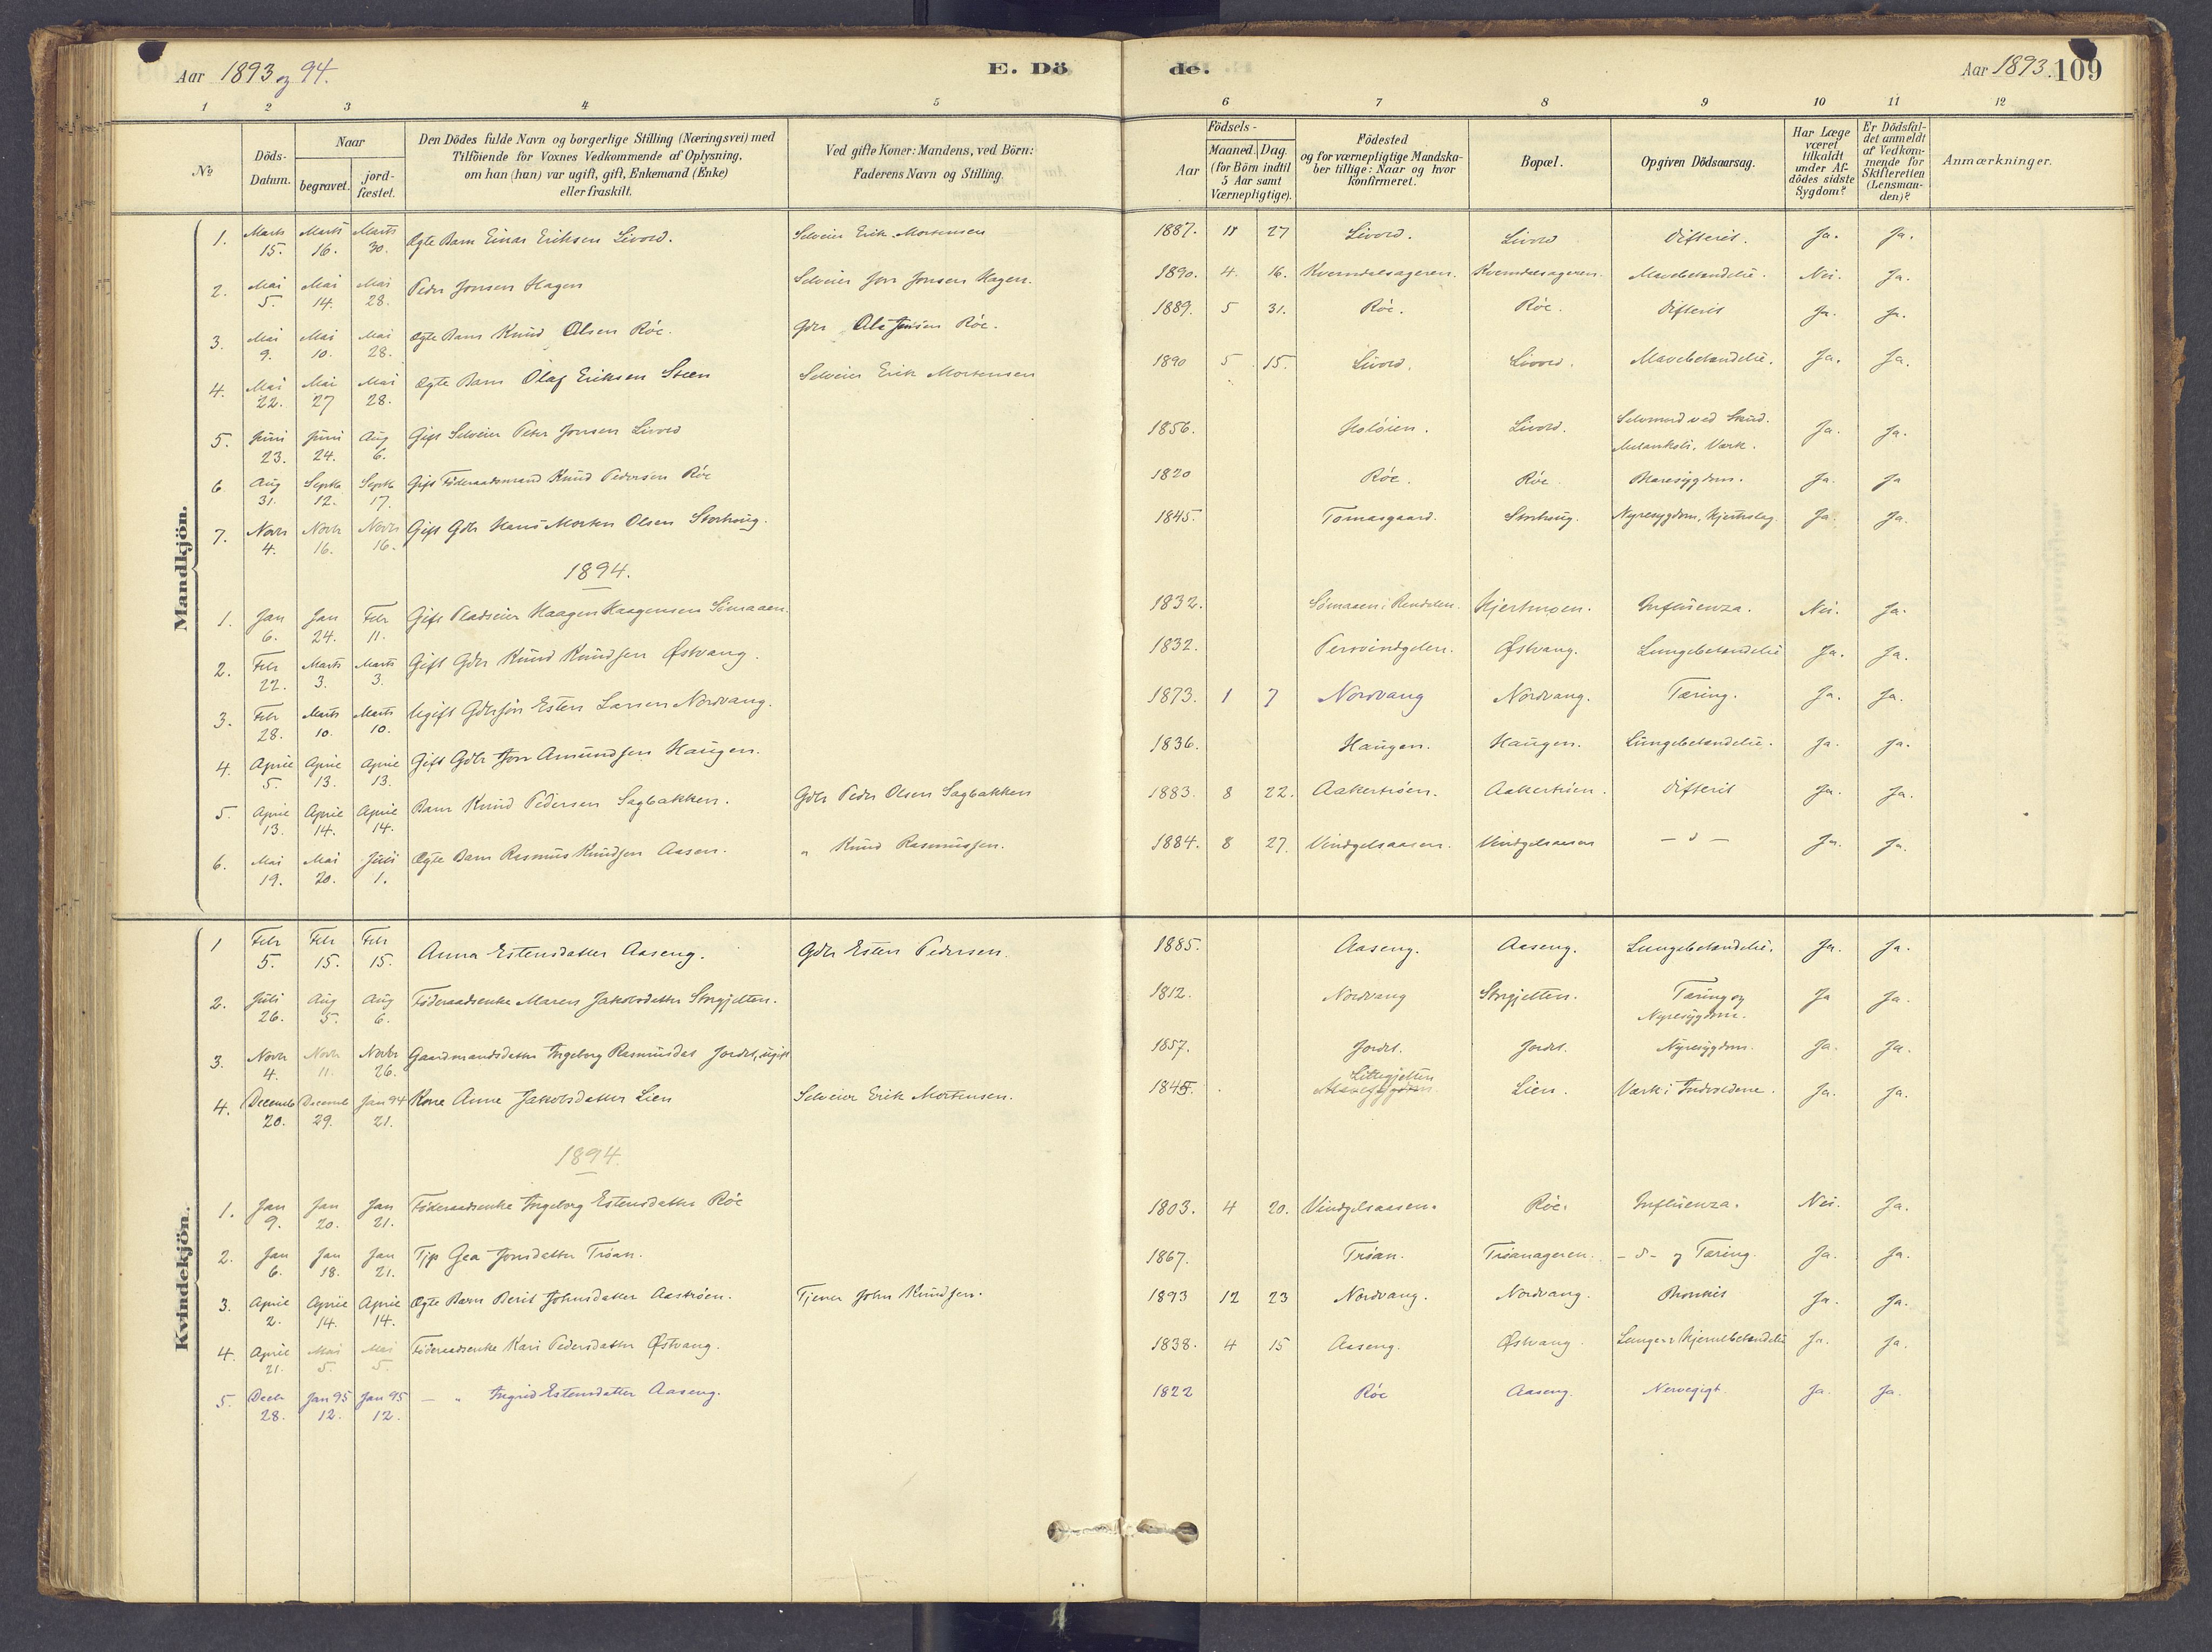 Aar 1893 og 94.
E. Döde.
Aar 1893. 109
1 2 3 4 5 6 7 8 9 10 11 12
No
Döds-Datum.
Naar
begravet.
jord-fæstet.
Den Dödes fulde Navn og borgerlige Stilling (Næringsvei) med
Tilföiende for Voxnes Vedkommende af Oplysning,
om han (hun) var ugift, gift, Enkemand (Enke)
eller fraskilt.
Ved gifte Koner: Mandens, ved Börn:
Faderens Navn og Stilling.
Födsels-
Aar
Maaned. Dag.
(for Börn indtil
5 Aar samt
Værnepligtige).
Födested
og for værnepligtige Mandska-
ber tillige: Naar og hvor
konfirmeret.
Bopæl.
Opgiven Dödsaarsag.
Har Læge
været
tilkaldt
under Af-
dödes sidste
Sygdom?
Er Dödsfal-
det anmeldt
af Vedkom-
mende for
Skifteretten
(Lensman-
den)?
Anmærkninger.
Mandkjön.
1. Marts 15. Marts 16. Marts 30. Ægte Barn Einar Eriksen Livord. Selveier Erik Mortensen 1887. 11 27 Livord. Livord Difterit. Ja. Ja.
2. Mai 5. Mai 14. Mai 28. Peder Jonsen Hagen Selveier Jon Jonsen Hagen. 1890. 4. 16. Kverndalsageren. Kverndalsageren. Mavebetændelse. Nei. Ja.
3. Mai 9. Mai 10. Mai 28. Ægte Barn Knud Olsen Röe. Gdr Ola Jonsen Röe. 1889. 5 31. Röe. Röe. Difterit Ja. Ja.
4. Mai 22. Mai 27 Mai 28. Ægte Barn Olaf Eriksen Steen Selveier Erik Mortensen 1890 5 15. Livord. Livord. Mavebetændelse. Ja. Ja.
5. Juni 23. Juni 24. Aug 6. Gift Selveier Peter Jonsen Livord 1856. Holöien. Livord. Selvmord ved Skud. Melankoli, Værk. Ja. Ja.
6. Aug 31. Septb 12. Septb 17. Gift Föderaadsmand Knud Pedersen Röe 1820 Röe. Röe. Blæresygdom. Ja. Ja
7. Novbr 4. Novbr 16. Novbr 16. Gift Gdr Hans Morten Olsen Storhoug. 1845. Tomasgaard. Storhoug. Nyresygdom, Hjerteslag. Ja. Ja.
1894.
1. Jan 6. Jan 24. Febr 11. Gift Pladseier Haagen Haagensen Sömaaen. 1832. Sömaaen i Rendalen. Hjertmoen. Influenza. Nei. Ja.
2. Febr 22. Marts 3. Marts 3. Gift Gdr Knud Knudsen Østvang. 1832. Pervindgelen. Østvang. Lungebetændelse Ja. Ja.
3. Febr 28. Marts 10. Marts 10. Ugift Gdrsön Esten Larsen Nordvang. 1873. 1 7 Nordvang Nordvang. Tæring. Ja. Ja.
4. April 5. April 13. April 13. Gift Gdr Jon Amundsen Haugen. 1836. Haugen. Haugen. Lungebetændelse. Ja. Ja.
5. April 13. April 14. April 14. Barn Knud Pedersen Sagbakken. Gdr Peder Olsen Sagbakken 1883. 8 22. Aakertröen. Aakertröen. Difterit Ja. Ja.
6. Mai 19. Mai 20. Juli 1. Ægte Barn Rasmus Knudsen Aasen. " Knud Rasmussen. 1884. 8 27. Vindgelsaasen. Vindgelsaasen - d - Ja. Ja.
Kvindekjön.
1 Febr 5. Febr 15. Febr 15. Anna Estensdatter Aaseng. Gdr Esten Pedersen. 1885. Aaseng. Aaseng. Lungebetændelse. Ja. Ja.
2. Juli 26. Aug 5. Aug 6. Föderaadsenke Maren Jakobsdatter Storgjelten. 1812. Nordvang Storgjelten. Tæring og Nyresygdom. Ja Ja.
3. Novbr 4. Novbr 11. Novbr 26. Gaardmandsdatter Ingeborg Rasmusdat Jordet, ugift 1857. Jordet. Jordet. Nyresygdom. Ja. Ja.
4. Decemb 20. Decemb 29. Jan 94 21. Kone Anne Jakobsdatter Lien Selveier Erik Mortensen. 1845. Littlegjelten Lien. Værk i Indvoldene. Ja. Ja.
1894.
1. Jan 9. Jan 20. Jan 21. Föderaadsenke Ingeborg Estensdatter Röe 1803. 4 20. Vindgelsaasen. Röe. Influenza. Nei. Ja.
2. Jan 6. Jan 18. Jan 21. Tjp Gea Jonsdatter Tröan. 1867. Tröan. Tröanageren. - d - og Tæring. Ja. Ja.
3. April 2. April 14. April 14. Ægte Barn Berit Johnsdatter Aaströen. Tjener John Knudsen. 1893 12 23 Nordvang. Nordvang. Bronkit Ja. Ja.
4. April 21. Mai 5. Mai 5. Föderaadsenke Kari Pedersdatter Østvang. 1838. 4 15 Aaseng. Østvang. Lunge & Hjernebetændelse Ja. Ja.
5. Decb 28. Jan 95 12. Jan 95 12. - " Ingrid Estensdatter Aaseng. 1822 Röe Aaseng. Nervegigt. Ja. Ja.